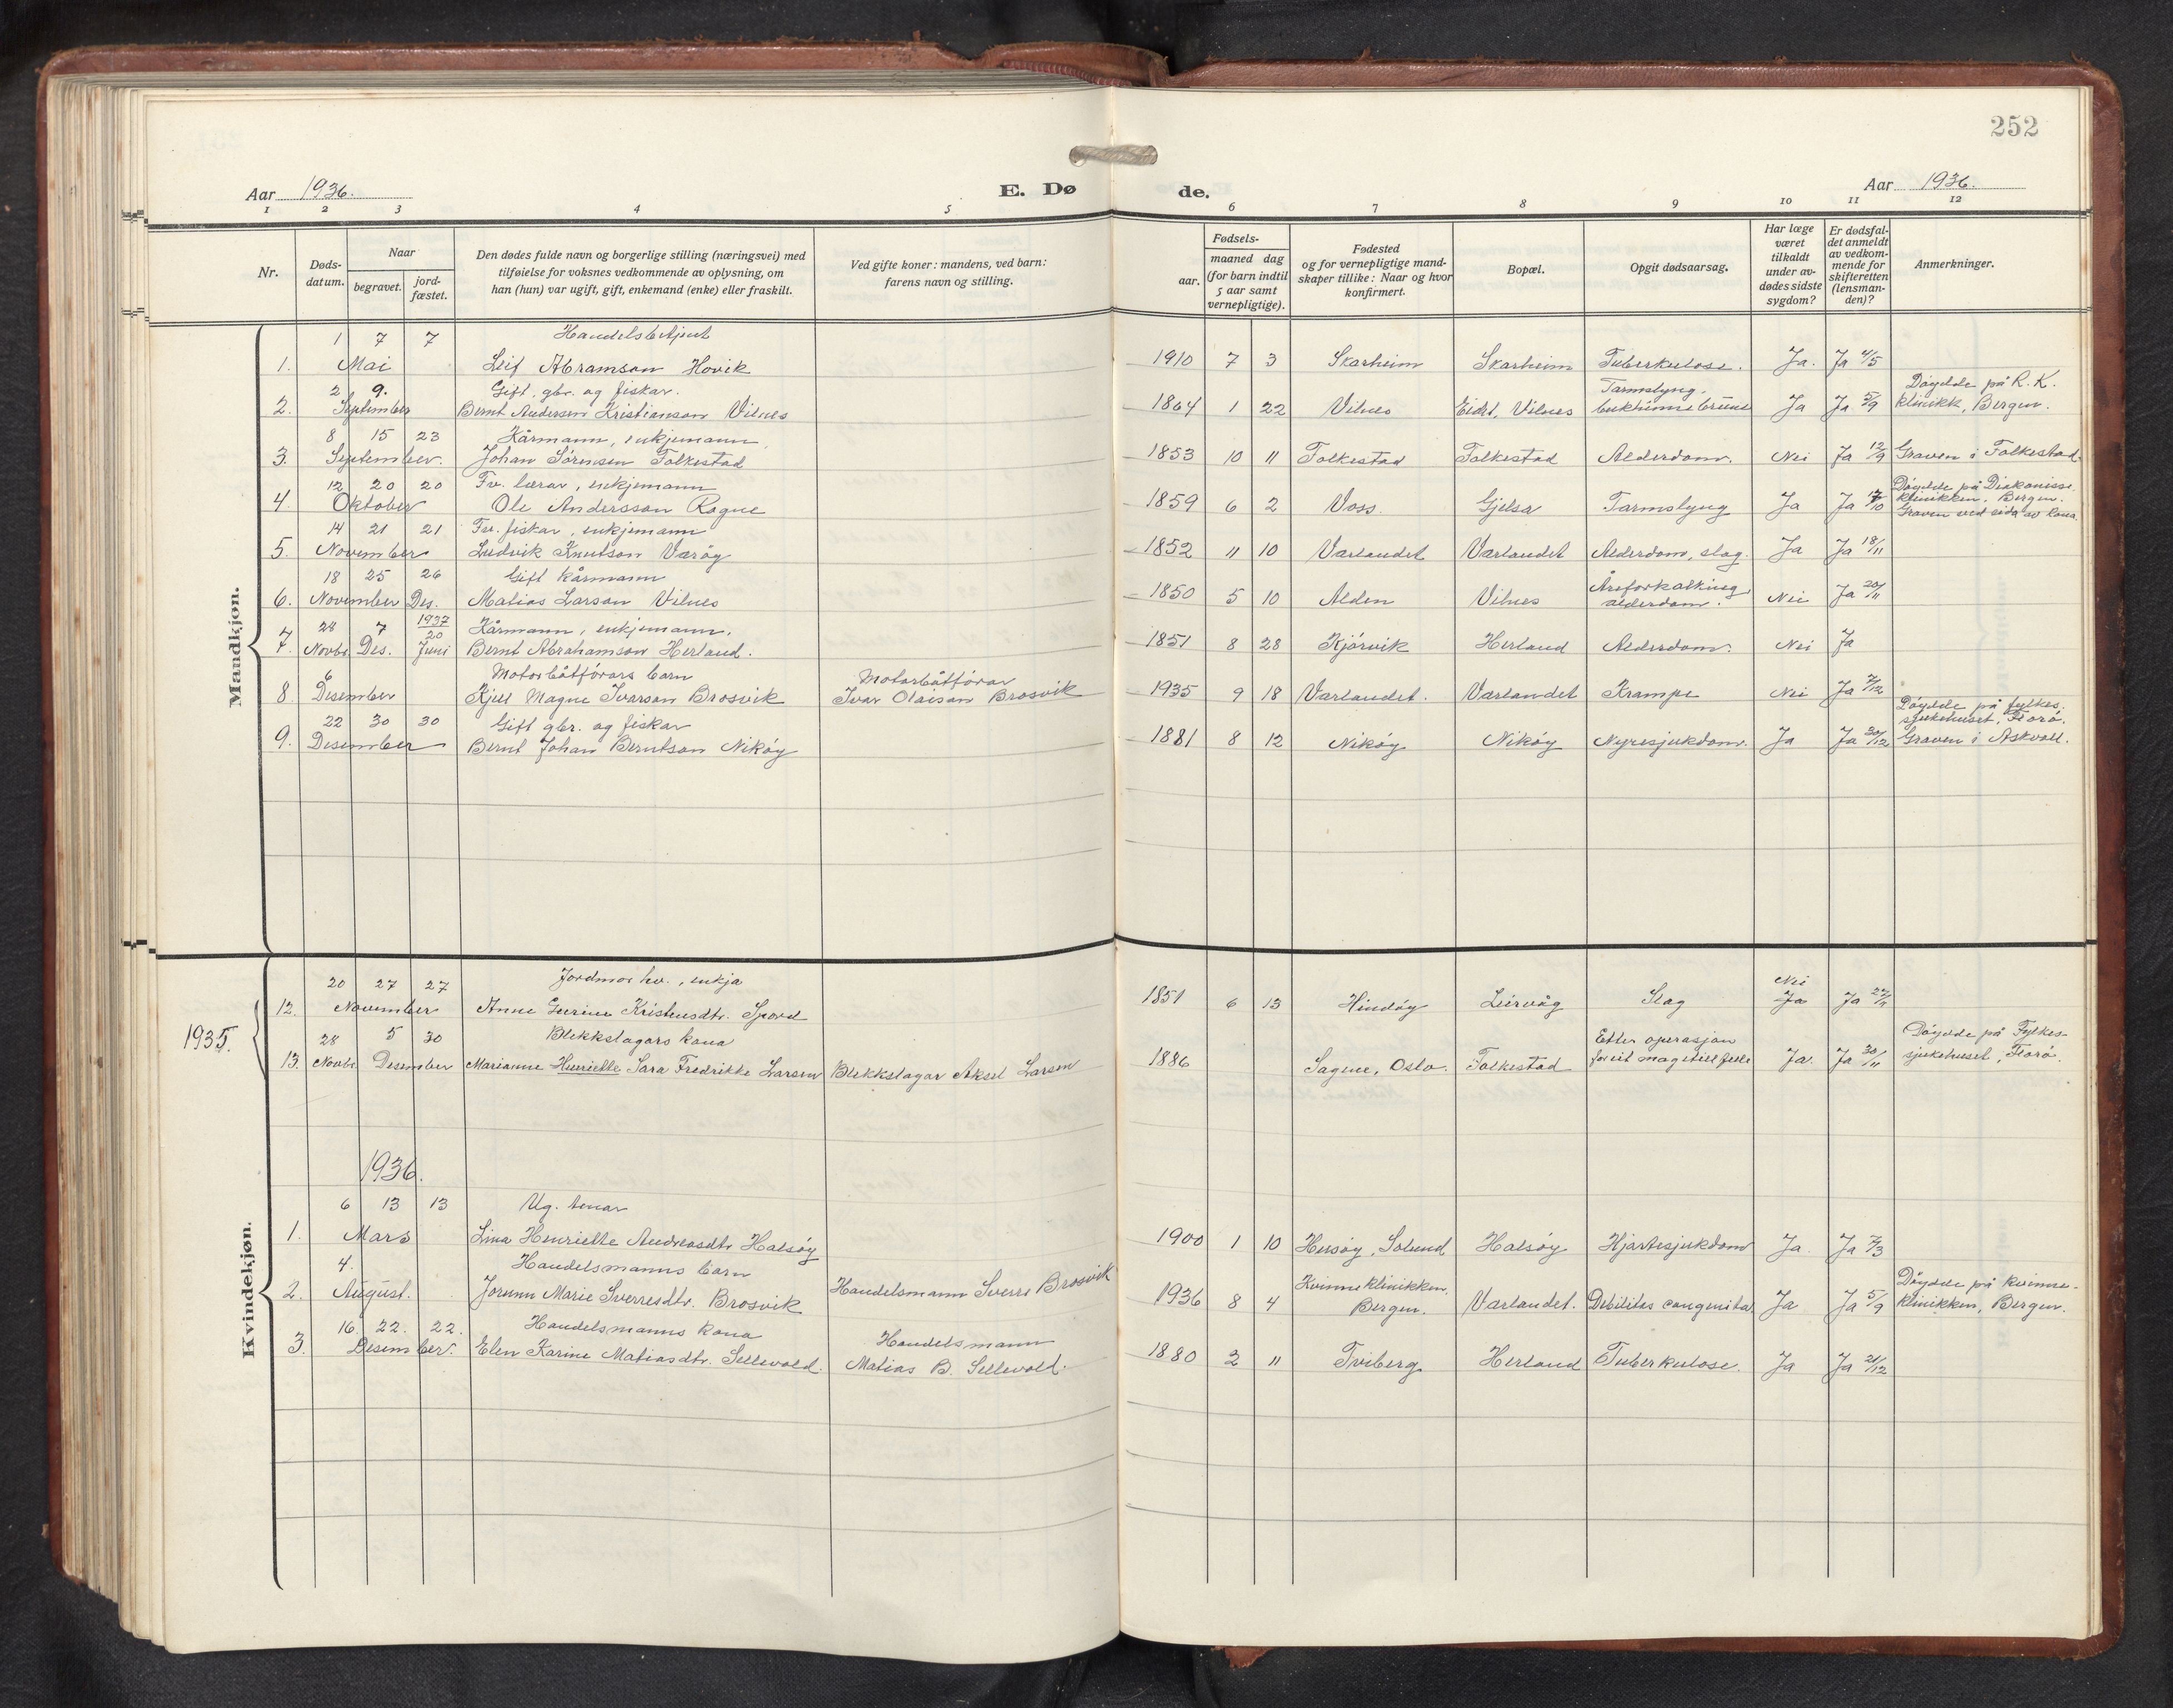 252
Aar 1936.
E. Dø de.
Aar 1936.
1 2 3 4 5 6 7 8 9 10 11 12
Nr.
Døds-
datum.
Naar
begravet.
jord-
fæstet.
Den dødes fulde navn og borgerlige stilling (næringsvei) med
tilføielse for voksnes vedkommende av oplysning, om
han (hun) var ugift, gift, enkemand (enke) eller fraskilt.
Ved gifte koner: mandens, ved barn:
farens navn og stilling.
Fødsels-
aar.
maaned dag
(for barn indtil
5 aar samt
vernepligtige).
Fødested
og for vernepligtige mand-
skaper tillike: Naar og hvor
konfirmert.
Bopæl.
Opgit dødsaarsag.
Har læge
været
tilkaldt
under av-
dødes sidste
sygdom?
Er dødsfal-
det anmeldt
av vedkom-
mende for
skifteretten
(lensman-
den)?
Anmerkninger.
Mandkjøn.
1 7 7 Handelsbetjent
1. Mai Leif Abramson Hovik 1910 7 3 Skarheim Skarheim Tuberkulose. Ja. Ja 4/5
2 9. Gift. gbr. og fiskar. Tarmslyng, Døydde på R. K.
2. September Bernt Andersen Kristianson Vilnes 1864 1 22 Vilnes Eidt, Vilnes Ja Ja klinikk, Bergen.
8 15 23 Kårmann, enkjemann
3. September. Johan Sørensen Folkestad 1853 10 11 Folkestad Folkestad Alderdom. Nei Ja 12/9 Graven i Folkestad.
12 20 20 Fv. lærar, enkjemann Døydde på Diakonisse-
4. Oktober Ole Andersson Rogne 1859 6 2 Voss. Gjelsa Tarmslyng Ja Ja klinikken, Bergen.
Graven ved sida av kona.
14 21 21 Fv. fiskar, enkjemann
5. November Ludvik Knutson Varøy 1852 11 10 Værlandet Værlandet Alderdom, slag. Ja Ja 18/11
18 25 26 Gift kårmann Åreforkalking
6. November Des. Matias Larson Vilnes 1850 5 10 Alden Vilnes alderdom. Nei Ja 20/11
28 7 1937 20 Kårmann, enkjemann.
7. Novbr. Des. Juni Bernt Abrahamson Herland. 1851 8 28 Kjørvik Herland Alderdom. Nei Ja
6 Motorbåtførars barn Motorbåtførar
8. Desember Kjell Magne Ivarson Brosvik Ivar Olaison Brosvik 1935 9 18 Værlandet. Værlandet Krampe Nei Ja 7/12
22 30 30 Gift gbr. og fiskar Døydde på fylkes-
sjukehuset, Florø.
9. Desember Bernt Johan Berntson Nikøy 1881 8 12 Nikøy Nikøy Nyresjukdom. Ja Ja 30/12 Graven i Askvoll.
Kvindekjøn.
20 27 27 Jordmor hv., enkja Nei
12. November Anne Gurine Kristensdtr. Spord 1851 6 13 Hindøy Leirvåg Slag Ja Ja
1935.
28 5 30 Blekkslagars kona Etter operasjon Døydde på Fylkes-
13. Novbr. Desember Marianne Henriette Sara Fredrikke Larsen Blekkslagar Aksel Larsen 1886 Sagene, Oslo. Folkestad for eit magetilfelle Ja. Ja 30/11 sjukehuset, Florø.
1936.
6 13 13 Ug. tenar
1. Mars Lina Henriette Andreasdtr. Halsøy 1900 1 10 Hersøy, Solund Halsøy Hjartesjukdom Ja Ja 7/3
4. Handelsmanns barn Kvinneklinikken, Døydde på kvinne-
2. August. Jorunn Marie Sverresdtr. Brosvik Handelsmann Sverre Brosvik 1936 8 4 Bergen. Værlandet. Debilitas congenita Ja Ja 5/9 klinikken, Bergen.
16. 22. 22. Handelsmanns kona Handelsmann
3. Desember. Elen Karine Matiasdtr. Sellevold. Matias B. Sellevold. 1880 2 11 Tviberg Herland Tuberkulose. Ja Ja 21/12